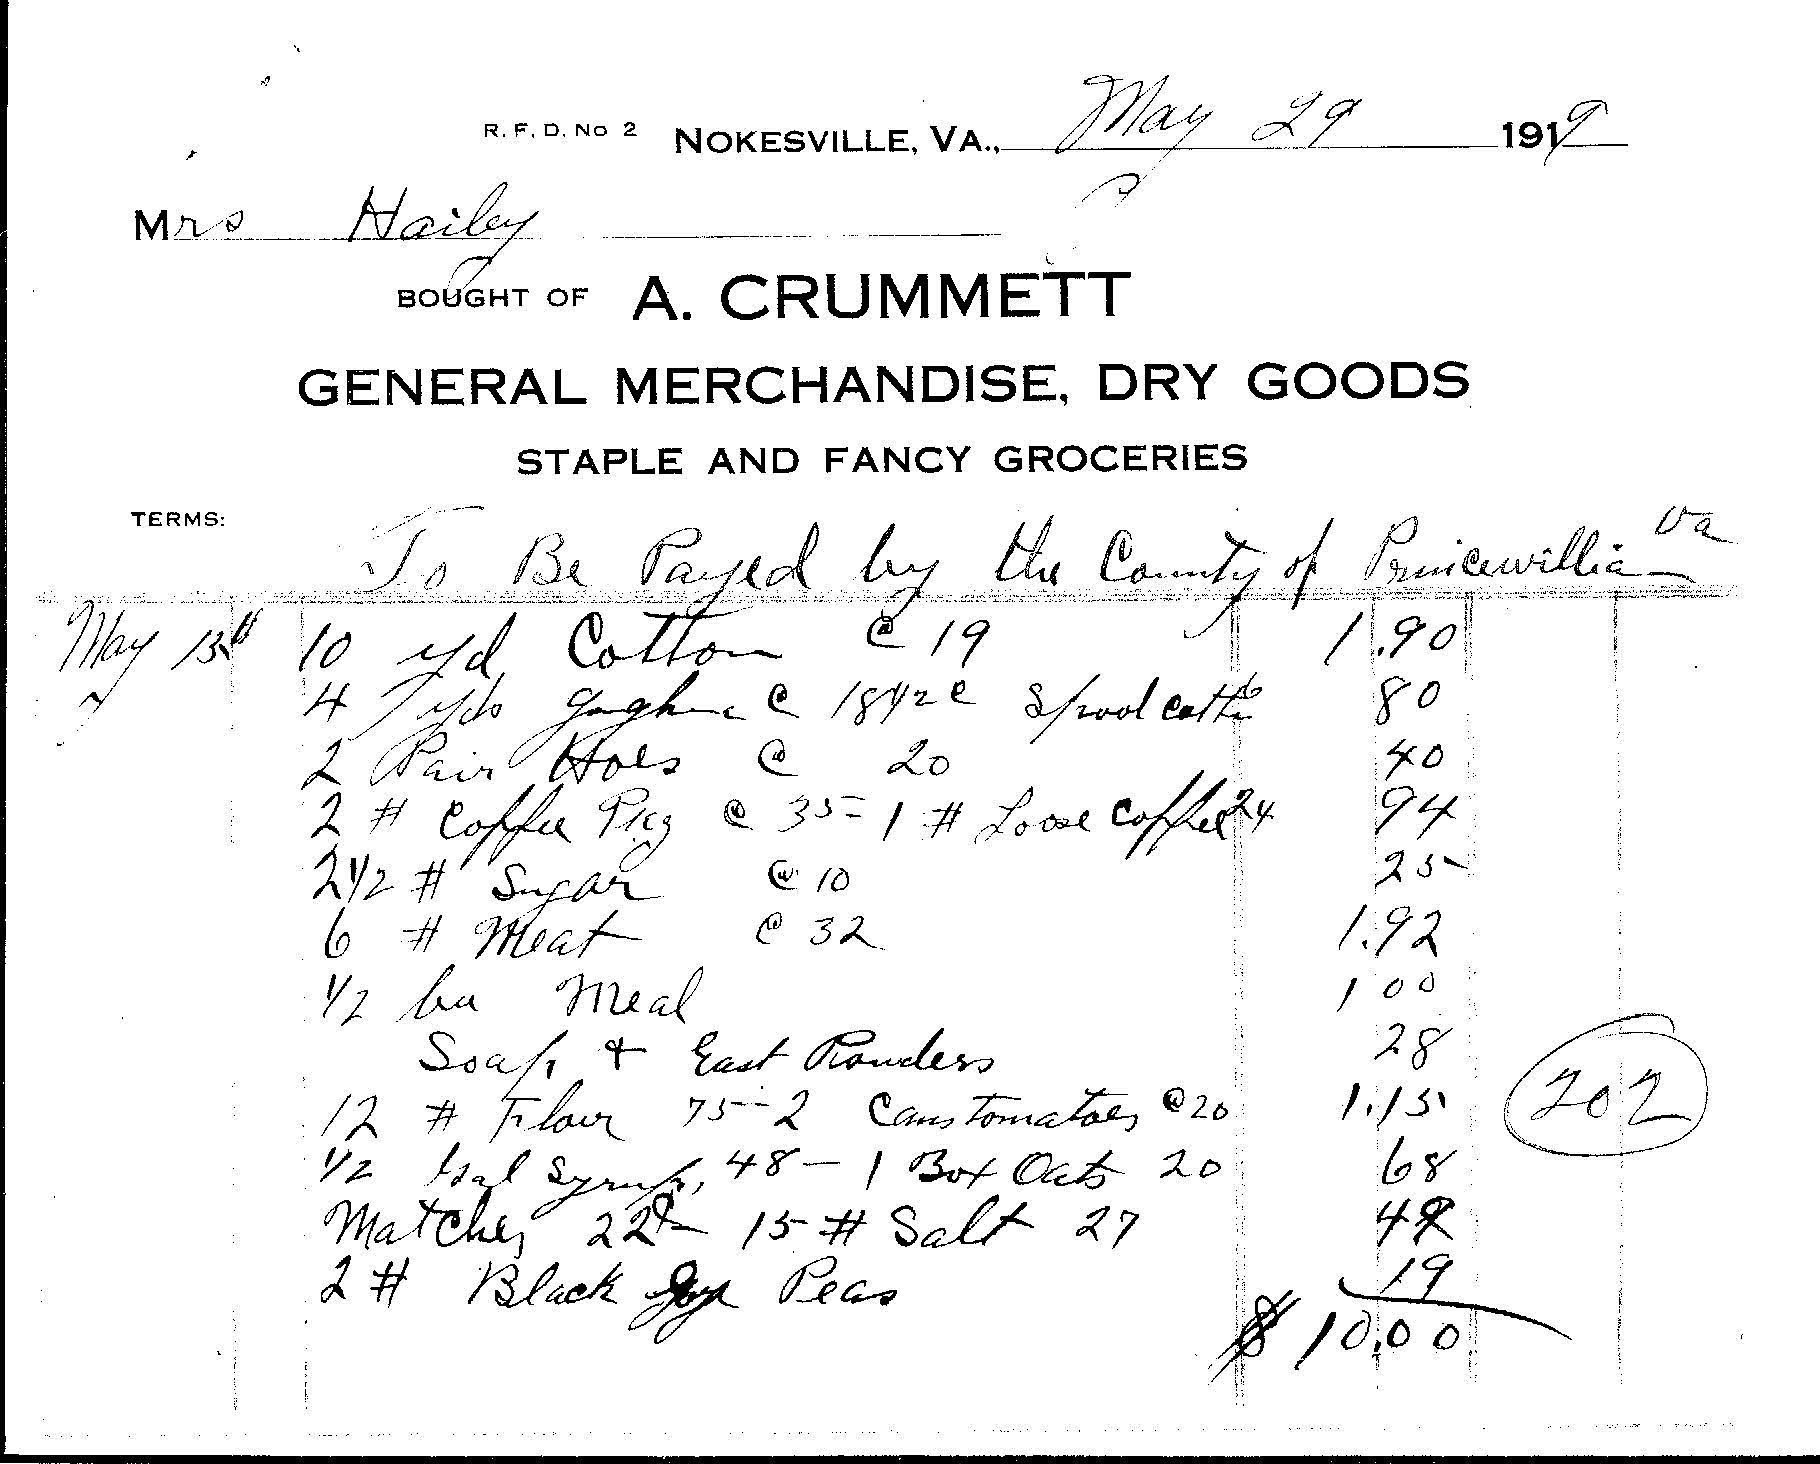 R. F. D. No 2 NOKESVILLE, VA., May 29 1919
Mrs Hailey
BOUGHT OF A. CRUMMETT
GENERAL MERCHANDISE, DRY GOODS
STAPLE AND FANCY GROCERIES
TERMS:
To Be Payed by the County of Princewillia Va
May 13th 10 yd Cotton @ 19 1.90
4 yds @ 18 1/2 c Spool 80
2 Pair Hoes @ 20 40
2 # Coffee Pkg @ 35 - 1 # Loose Coffee 24 94
2 1/2 # Sugar @ 10 25
6 # Meat @ 32 1.92
1/2 bu Meal 1 00
Soap & East Powders 28
12 # Flour 75 - 2 Cans Tomatoes @ 20 1.15
1/2 Gal Syrup, 48 - 1 Box Oats 20 68
Matches 22 15 # Salt 27 49
2 # Black Peas 19
$ 10.00
202